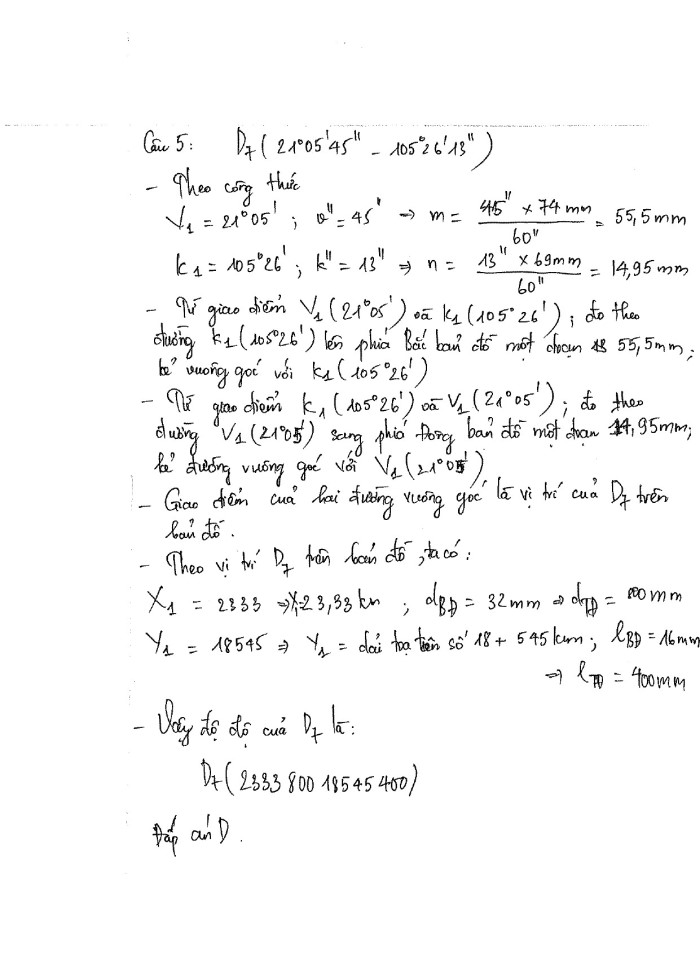 Câu 5: D7 ( 21°05'45" - 105°26'13" )
- Theo công thức
V1 = 21°05' ; v" = 45" => m = 45" x 74 mm / 60" = 55,5 mm
k1 = 105°26' ; k" = 13" => n = 13" x 69mm / 60" = 14,95 mm
- Từ giao điểm V1 (21°05') và k1 (105°26') ; đo theo
đường k1 (105°26') lên phía Bắc bản đồ một đoạn 55,5mm ;
kẻ vuông góc với k1 (105°26')
- Từ giao điểm k1 (105°26') và V1 (21°05') ; đo theo
đường V1 (21°05') sang phía Đông bản đồ một đoạn 14,95mm;
kẻ đường vuông góc với V1 (21°05')
- Giao điểm của hai đường vuông góc là vị trí của D7 trên
bản đồ.
- Theo vị trí D7 trên bản đồ , ta có :
X1 = 2333 => X1=23,33 km ; dBĐ = 32 mm => dTĐ = 800 mm
Y1 = 18545 => Y1 = dải toạ số 18 + 545 km ; lBĐ = 16mm
=> lTĐ = 400mm
- Vậy độ của D7 là :
D7 ( 2333 800 18545 400)
Đáp án D .